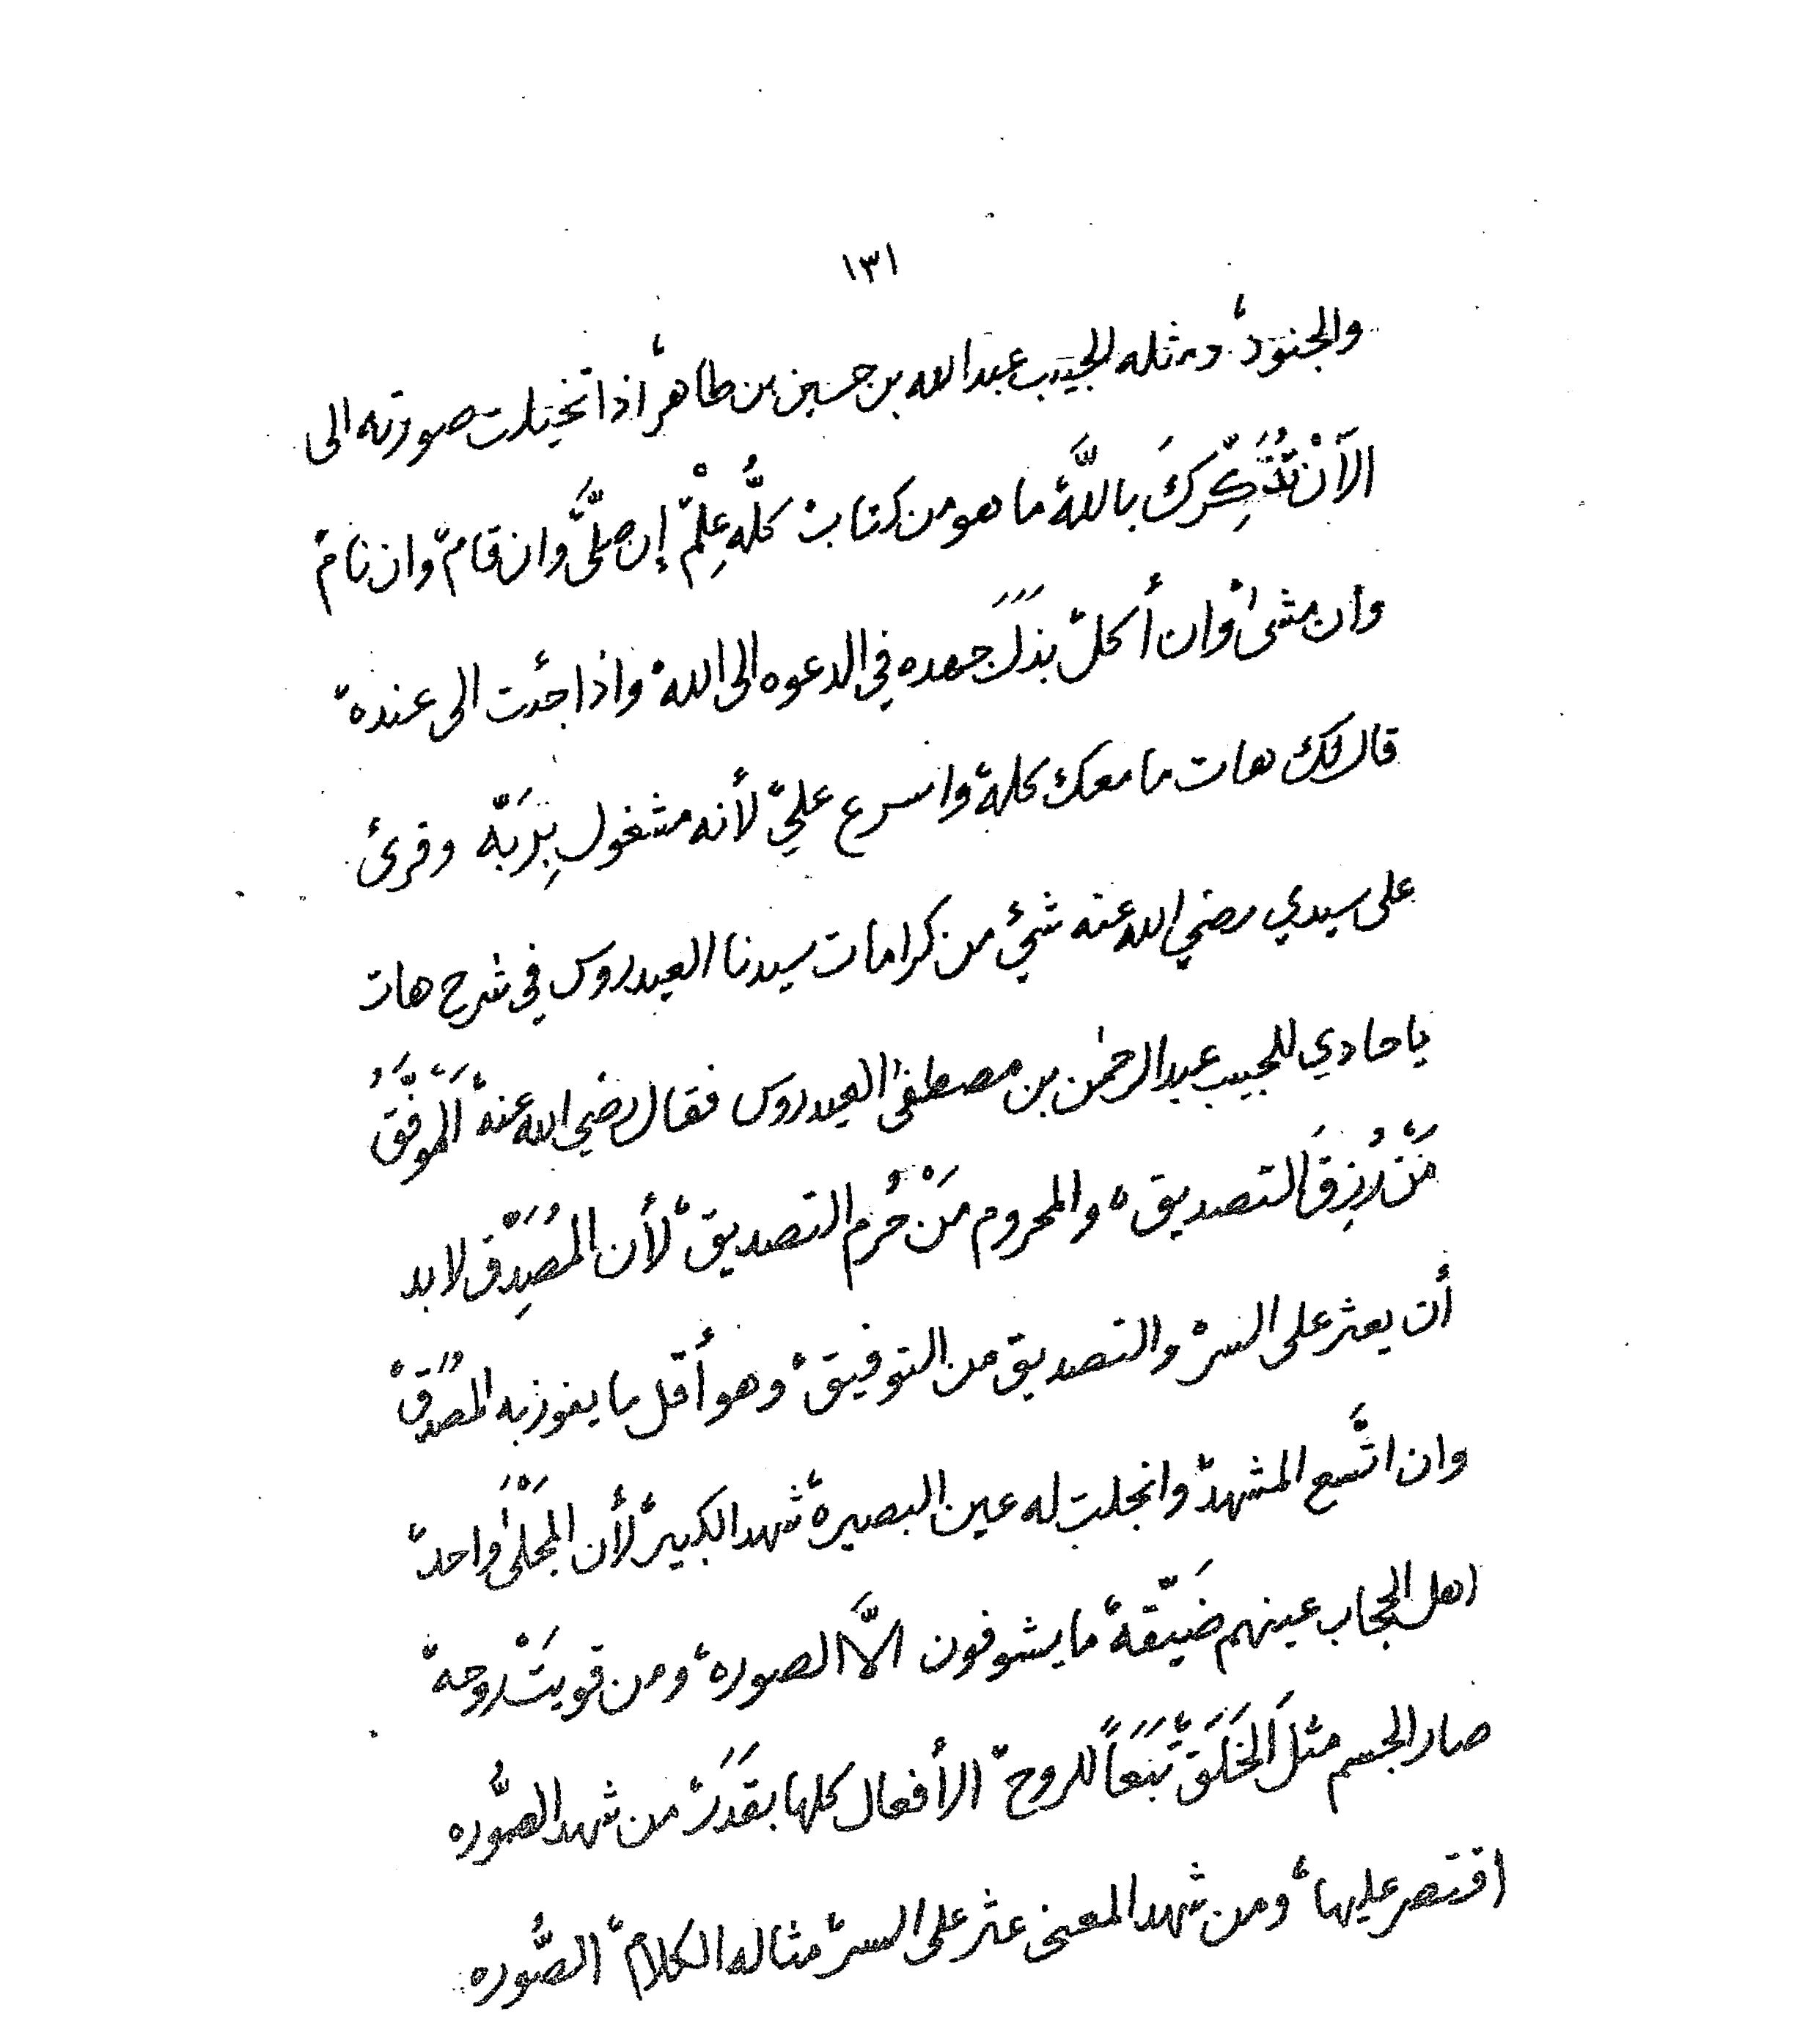 ١٣١
والجنود، ومثله الحبيب عبدالله بن حسين بن طاهر، اذا تخيلت صورته الى
الآنْ تُذَكِّرَكَ باللَّه، ما هو من كتاب، كلُّه عِلْمْ، إن صلَّى، وان قام، وان نام،
وان مشى، وان أكل، بَذَلَ جهده في الدعوه الى الله، واذا جئت الى عنده،
قال لك هات ما معك كله، واسرع عليّ، لأنه مشغول بِرَبّه وقرئ
على سيدي رضي الله عنه شئ من كرامات سيدنا العيدروس في شرح هات
يا حادي للحبيب عبدالرحمٰن بن مصطفى العيدروس فقال رضي الله عنه، اَلْمُوَفَّقُ
مَنْ رُزِقَ التصديق، والمحروم مَنْ حُرم التصديق، لأن المُصَدِّق لا بد
أن يعثر على السر، والتصديق من التوفيق، وهو أقل ما يفوز به المصدق،
وان اتَّسع المشهد، وانجلت له عين البصيرة، شهد الكبير، لأن المَجْلَى واحد،
اهل الحجاب عينهم ضَيّقة، ما يشوفون الاَّ الصوره، ومن قويَتْ روحه،
صار الجسم مثلَ الخَلَقْ، تَبَعاً للروح، الأفعال كلها بقَدَرْ، من شهد الصُّوره
اقتصر عليها، ومن شهد المعنى عثر على السر، مثاله الكلام، الصُّوره